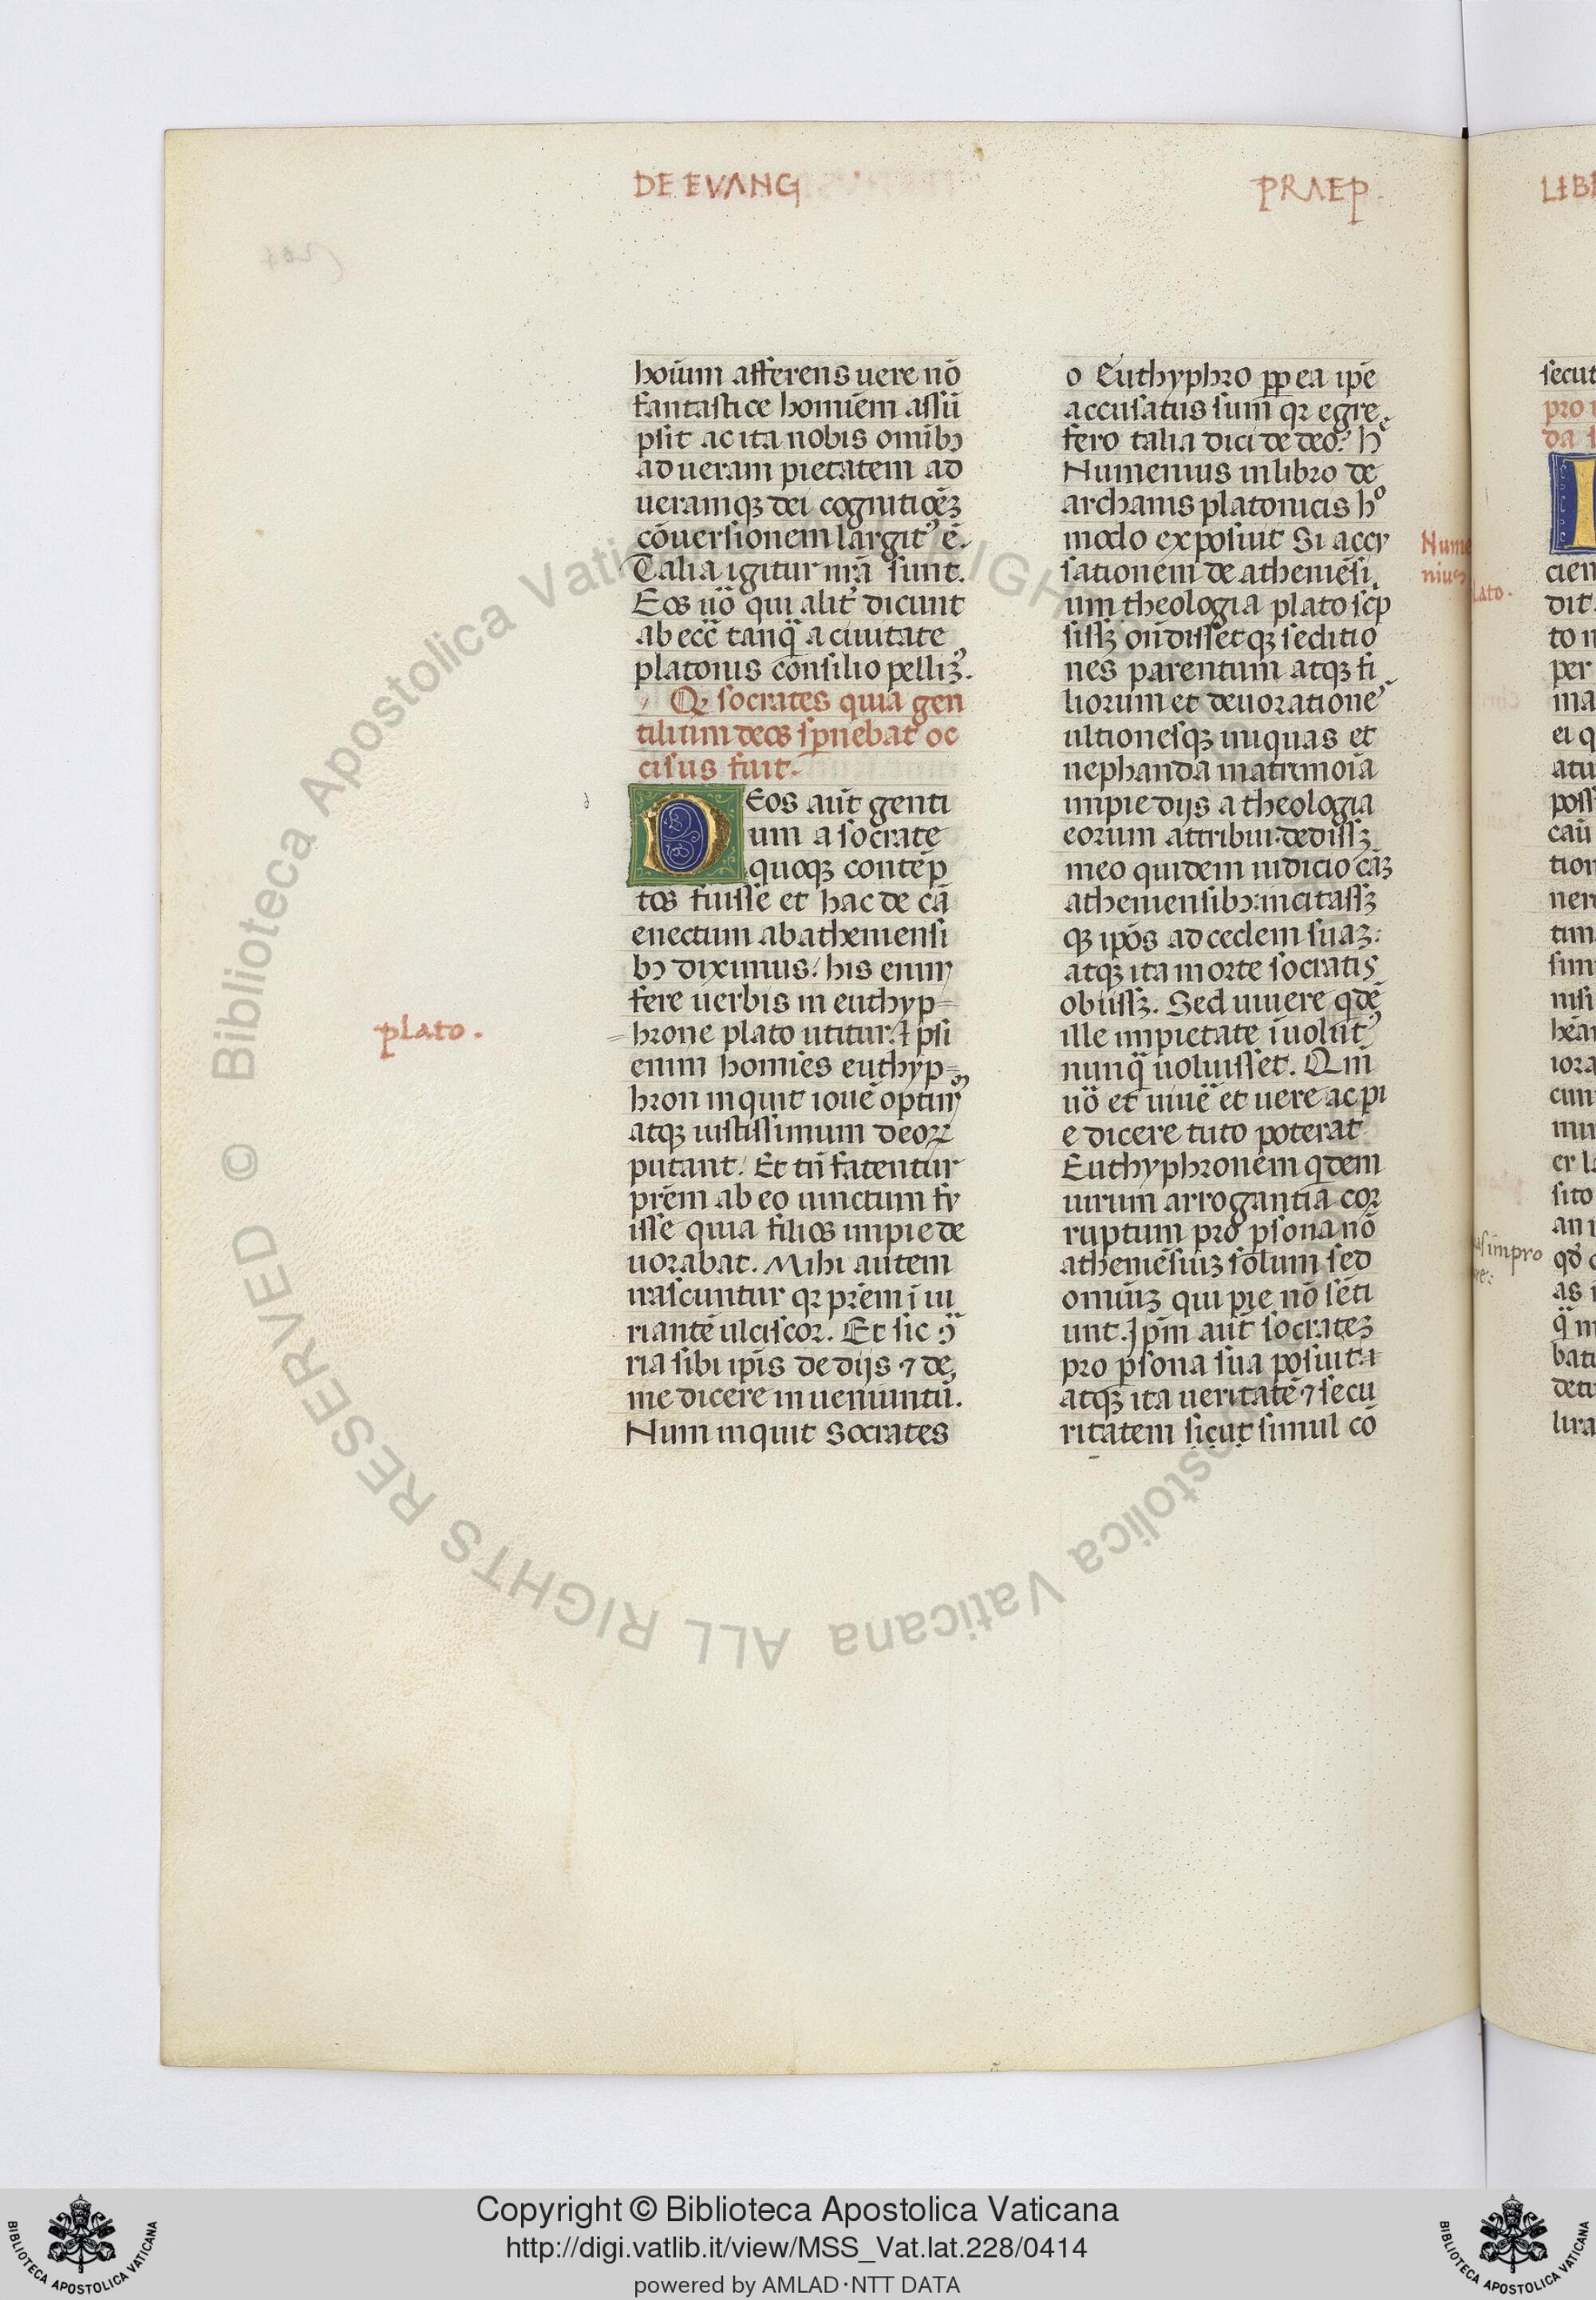 DE EVANG
PRAEP.
hoīum afferens uere nō
fantastice homīem assū
psit ac ita nobis omībꝫ
ad ueram pietatem ad
ueramqꝫ dei cognitiōēꝫ
cōuersionem largitꝰ ē.
Talia igitur nr̄a sunt.
Eos uō qui alit̄ dicunt
ab ecc̄ tanq̄ a ciuitate
platonis consilio pelliꝫ.
Qꝫ socrates quia gen
tilium deos sp̄nebat oc
cisus fuit.
DEos aūt genti
um a socrate
quoqꝫ contēp
tos fuisse et hac de cā
enectum ab atheniensi
bꝫ diximus. his enim
fere uerbis in euthyp=
=hrone plato utitur. Ipsi
enim homīes euthyp=
hron inquit iouē optim̄
atqꝫ iustissimum deoꝝ
putant. Et tn̄ fatentur
pr̄em ab eo uinctum fu
isse quia filios impie de
uorabat. Mihi autem
irascuntur qꝛ pr̄em īiu
riantē ulciscor. Et sic ꝯ̄
ria sibi ip̄is de dijs ⁊ de
me dicere inueniuntū.
Num inquit Socrates
plato.
o Euthyphro ꝓꝑ ea ip̄e
accusatus sum qꝛ egre
fero talia dici de deo? h̄
Numenius in libro de
archanis platonicis hᵒ
modo exposiut Si accu
sationem de atheniēsi
um theologia plato scp̄
sissꝫ on̄disset qꝫ seditio
nes parentum atqꝫ fi
liorum et deuorationē
ultionesqꝫ iniquas et
nephanda matrimoīa
impie dijs a theologia
eorum attribui: dedissꝫ
meo quidem iudicio cāꝫ
atheniensibꝫ: incitassꝫ
qꝫ ip̄os ad cedem suaꝫ:
atqꝫ ita morte socratis
obiissꝫ. Sed uiuere qͥdē
ille impietate īuolutꝰ
nunq̄ uoluisset. Qm̄
uō et uiuē et uere ac pi
e dicere tuto poterat
Euthyphronem qͥdem
uirum arrogantia cor
ruptum pro ꝑsona nō
atheniēsiuꝫ solum sed
omniuꝫ qui pie nō sēti
unt. Ip̄m aūt socrateꝫ
pro ꝑsona sua posuit
atqꝫ ita ueritatē ⁊ secu
ritatem sicut simul cō
Nume
nius
lato.
Copyright © Biblioteca Apostolica Vaticana
http://digi.vatlib.it/view/MSS_Vat.lat.228/0414
powered by AMLAD·NTT DATA
BIBLIOTECA APOSTOLICA VATICANA
BIBLIOTECA APOSTOLICA VATICANA
© Biblioteca Apostolica Vaticana ALL RIGHTS RESERVED